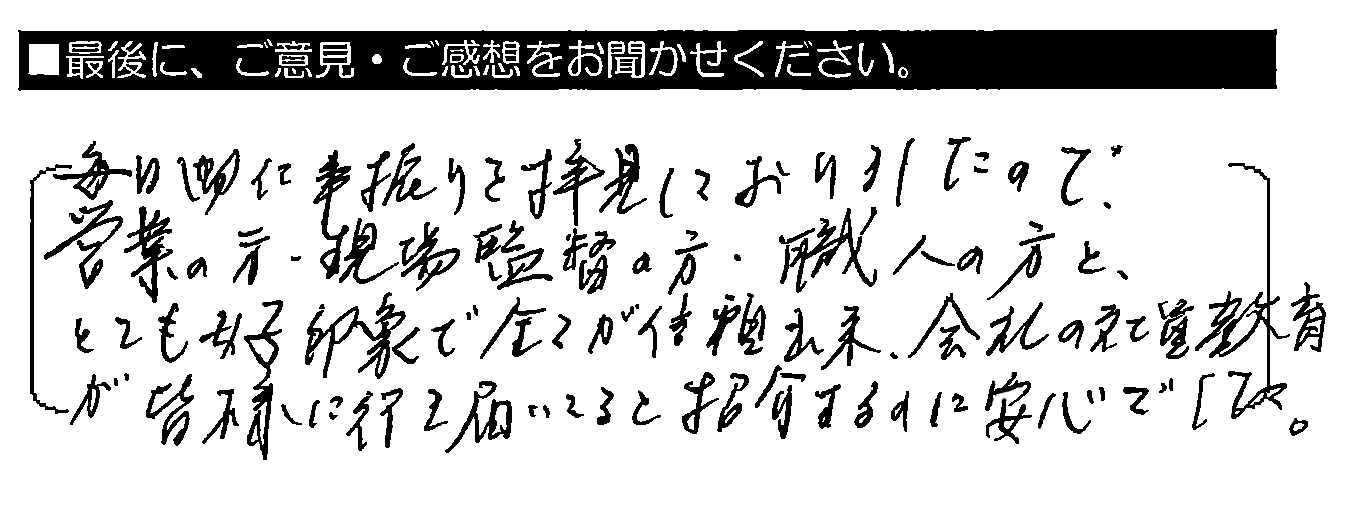 ■最後に、ご意見・ご感想をお聞かせください。
毎日の仕事振りを拝見しておりましたので、
営業の方・現場監督の方・職人の方と、
とても好印象で全てが信頼出来、会社の社員教育
が皆様に行き届いてると紹介するのに安心でした。